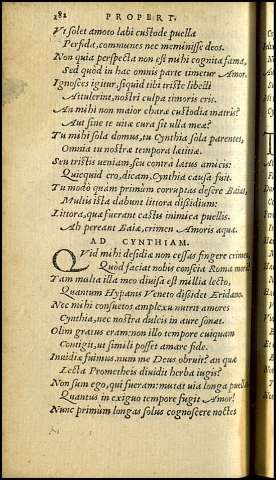 282 PROPERT.
Vt solet amoto labi custode puella
Perfida, communes nec meminisse deos.
Non quia perspecta non est mihi cognita fama,
Sed quòd in hac omnis parte timetur Amor.
Ignosces igitur, siquid tibi triste libelli
Attulerint, nostri culpa timoris erit.
An mihi non maior charæ custodia matris?
Aut sine te uitæ cura sit ulla meæ?
Tu mihi sola domus, tu Cynthia sola parentes,
Omnia tu nostræ tempora lætitiæ.
Seu tristis ueniam, seu contra lætus amicis:
Quicquid ero, dicam, Cynthia causa fuit.
Tu modò quam primùm corruptas desere Baias,
Multis ista dabunt littora dissidium:
Littora, quæ fuerant castis inimica puellis.
Ah pereant Baiæ, crimen Amoris aquæ.
AD CYNTHIAM.
Quid mihi desidiæ non cessas fingere crimen,
Quòd faciat nobis conscia Roma moram?
Tam multa illa meo diuisa est millia lecto,
Quantum Hypanis Veneto dissidet Eridano.
Nec mihi consuetos amplexu nutrit amores
Cynthia, nec nostra dulcis in aure sonat.
Olim gratus eram: non illo tempore cuiquam
Contigit, ut simili posset amare fide.
Inuidiæ fuimus. num me Deus obruit? an quæ
Lecta Prometheis diuidit herba iugis?
Non sum ego, qui fueram: mutat uia longa puellas
Quantus in exiguo tempore fugit Amor!
Nunc primùm longas solus cognoscere noctes